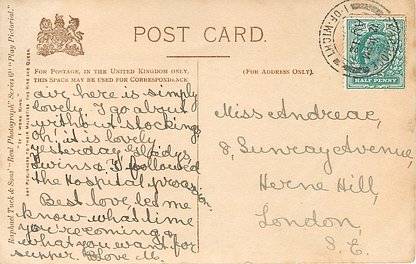 POST CARD.
FOR POSTAGE, IN THE UNITED KINGDOM ONLY,
THIS SPACE MAY BE USED FOR CORRESPONDENCE
(FOR ADDRESS ONLY).
HALF PENNY
Raphael Tuck & Sons' "Real Photograph" Series 6d "Play Pictorial."
air here is simply
lovely. I go about
without stockings
Oh! it is lovely
Yesterday Gladys,
twins & I followed
the Hospital procession
Best love, let me
know what time
you're coming &
what you want for
supper. Love M.
Miss Andreae,
8, Sunray Avenue,
Herne Hill,
London,
S.E.